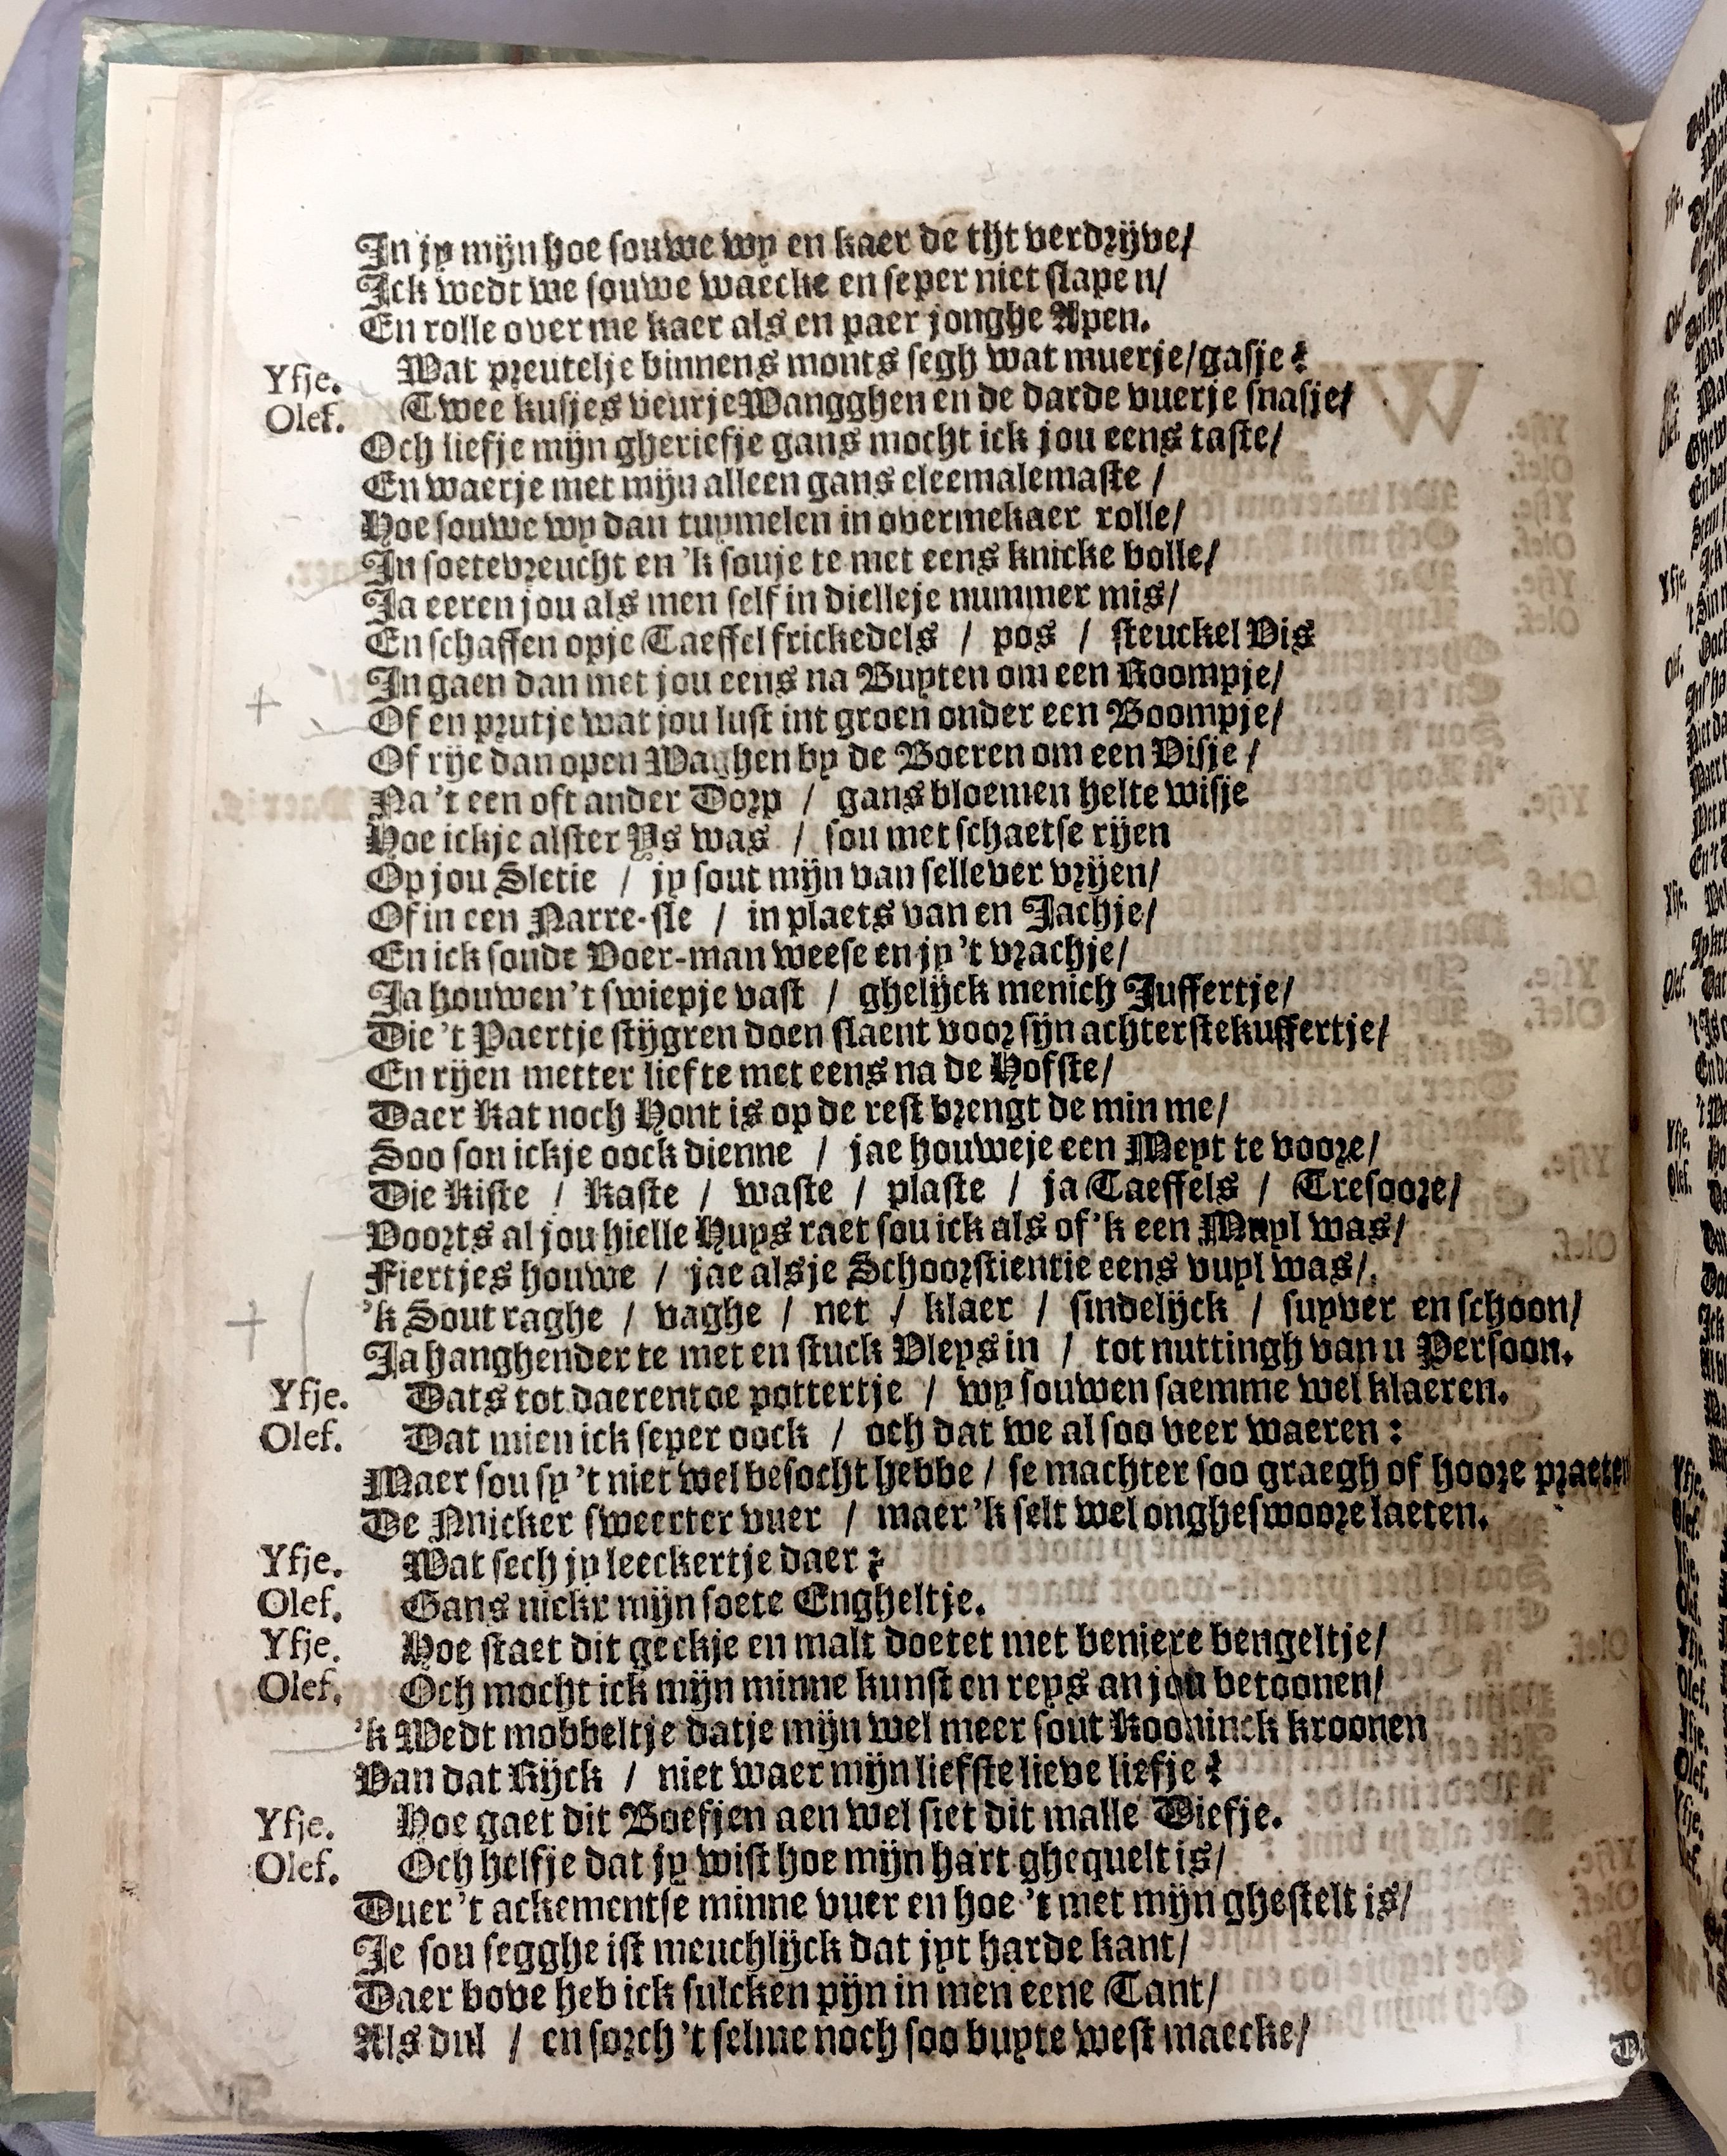 In jy mijn hoe souwe wy en kaer de tijt verdrijve/
Ick wedt we souwe waecke en seper niet slapen/
En rolle over me kaer als en paer jonghe Apen.
Yfje. Wat preutelje binnens monts segh wat muerje/gasje?
Olef. Twee kusjes veurje Wangghen en de darde vuerje snasje/
Och liefje mijn gheriefje gans mocht ick jou eens taste/
En waerje met mijn alleen gans eleemalemaste /
Hoe souwe wy dan tuymelen in overmekaer rolle/
In soetevreucht en 'k souje te met eens knicke bolle/
Ja eeren jou als men self in dielleje nummer mis/
En schaffen opje Taeffel frickedels / pos / steuckel Vis
In gaen dan met jou eens na Buyten om een Roompje/
Of en prutje wat jou lust int groen onder een Boompje/
Of rije dan open Waghen by de Boeren om een Visje /
Na 't een oft ander Dorp / gans bloemen helte wisje
Hoe ickje alster Ys was / sou met schaetse rijen
Op jou Sletie / jy sout mijn van sellever vrijen/
Of in een Narre-sle / in plaets van en Jachje/
En ick soude Voer-man weese en jy 't vrachje/
Ja houwen 't swiepje vast / ghelijck menich Juffertje/
Die 't Paertje stijgren doen slaent voor sijn achterstekuffertje/
En rijen metter liefte met eens na de Hofste/
Daer Kat noch Hont is op de rest brengt de min me/
Soo sou ickje oock dienne / jae houweje een Meyt te voore/
Die Kiste / Kaste / waste / plaste / ja Taeffels / Tresoore/
Voorts al jou hielle Huys raet sou ick als of 'k een Muyl was/
Fiertjes houwe / jae alsje Schoorstientie eens vuyl was/
'k Sout raghe / vaghe / net / klaer / sindelijck / suyver en schoon/
Ja hanghender te met en stuck Vleys in / tot nuttingh van u Persoon.
Yfje. Dats tot daerentoe pottertje / wy souwen saemme wel klaeren.
Olef. Dat mien ick seper oock / och dat we al soo veer waeren:
Maer sou sy 't niet wel besocht hebbe / se machter soo graegh of hoore praeten
De Nnicker sweerter vuer / maer 'k selt wel ongheswoore laeten.
Yfje. Wat sech jy leeckertje daer?
Olef. Gans nickr mijn soete Engheltje.
Yfje. Hoe staet dit geckje en malt doetet met beniere bengeltje/
Olef. Och mocht ick mijn minne kunst en reys an jou betoonen/
'k Wedt mobbeltje datje mijn wel meer sout Kooninck kroonen
Van dat Rijck / niet waer mijn liefste lieve liefje?
Yfje. Hoe gaet dit Boefjen aen wel siet dit malle Diefje.
Olef. Och helfje dat jy wist hoe mijn hart ghequelt is/
Duer 't ackementse minne vuer en hoe 't met mijn ghestelt is/
Je sou segghe ist meuchlijck dat jyt harde kant/
Daer bove heb ick sulcken pijn in men eene Tant/
Als dul / en sorch 't selme noch soo buyte west maecke/